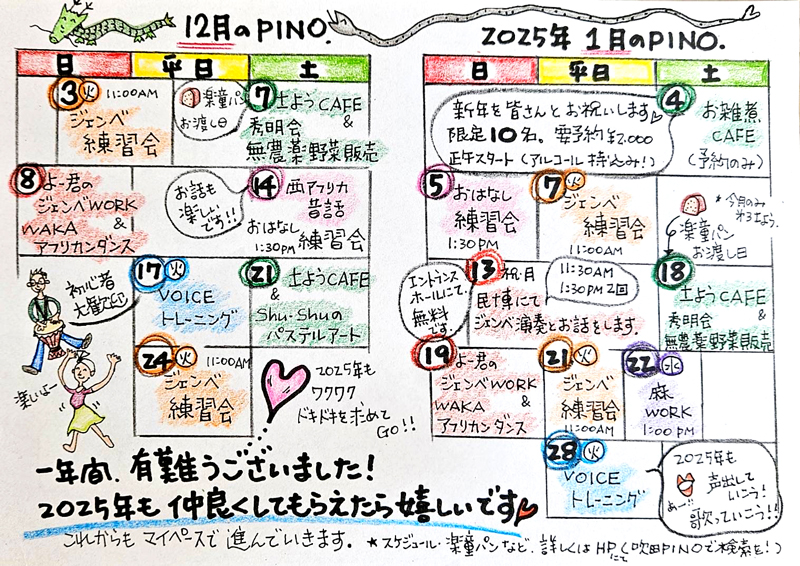 12月のPINO.
日 平日 土
3 火 11:00AM
ジェンベ
練習会
楽童パン
お渡し日
7 土ようCAFE
&
秀明会
無農薬野菜販売
8 よー君の
ジェンベWORK
&
WAKA
アフリカンダンス
お話も
楽しい
です!!
14 西アフリカ
昔話
おはなし
練習会
1:30PM
初心者
大歓迎
17 火
VOICE
トレーニング
21 土ようCAFE
&
Shu・Shuの
パステルアート
楽しいよー
24 火 11:00AM
ジェンベ
練習会
2025年も
ワクワク
ドキドキを求めて
GO!!
2025年 1月のPINO.
日 平日 土
新年を皆さんとお祝いします
限定10名。要予約 ¥2,000
正午スタート(アルコール持込み!)
4 お雑煮
CAFE
(予約のみ)
5 おはなし
練習会
1:30PM
7 火
ジェンベ
練習会
11:00AM
*今月のみ
第3土よう
楽童パン
お渡し日
エントランス
ホールにて
無料
です。
13 祝・月
11:30AM
1:30PM 2回
民博にて
ジェンベ演奏とお話をします。
18 土ようCAFE
&
秀明会
無農薬野菜販売
19 よー君の
ジェンベWORK
&
WAKA
アフリカンダンス
21 火
ジェンベ
練習会
11:00AM
22 水
麻
WORK
1:00PM
28 火
VOICE
トレーニング
2025年も
声出して
いこう!
あー
歌っていこう!!
一年間、有難うございました!
2025年も仲良くしてもらえたら嬉しいです
これからもマイペースで進んでいきます。
★スケジュール・楽童パンなど、詳しくはHPにて(吹田PINOで検索を!)